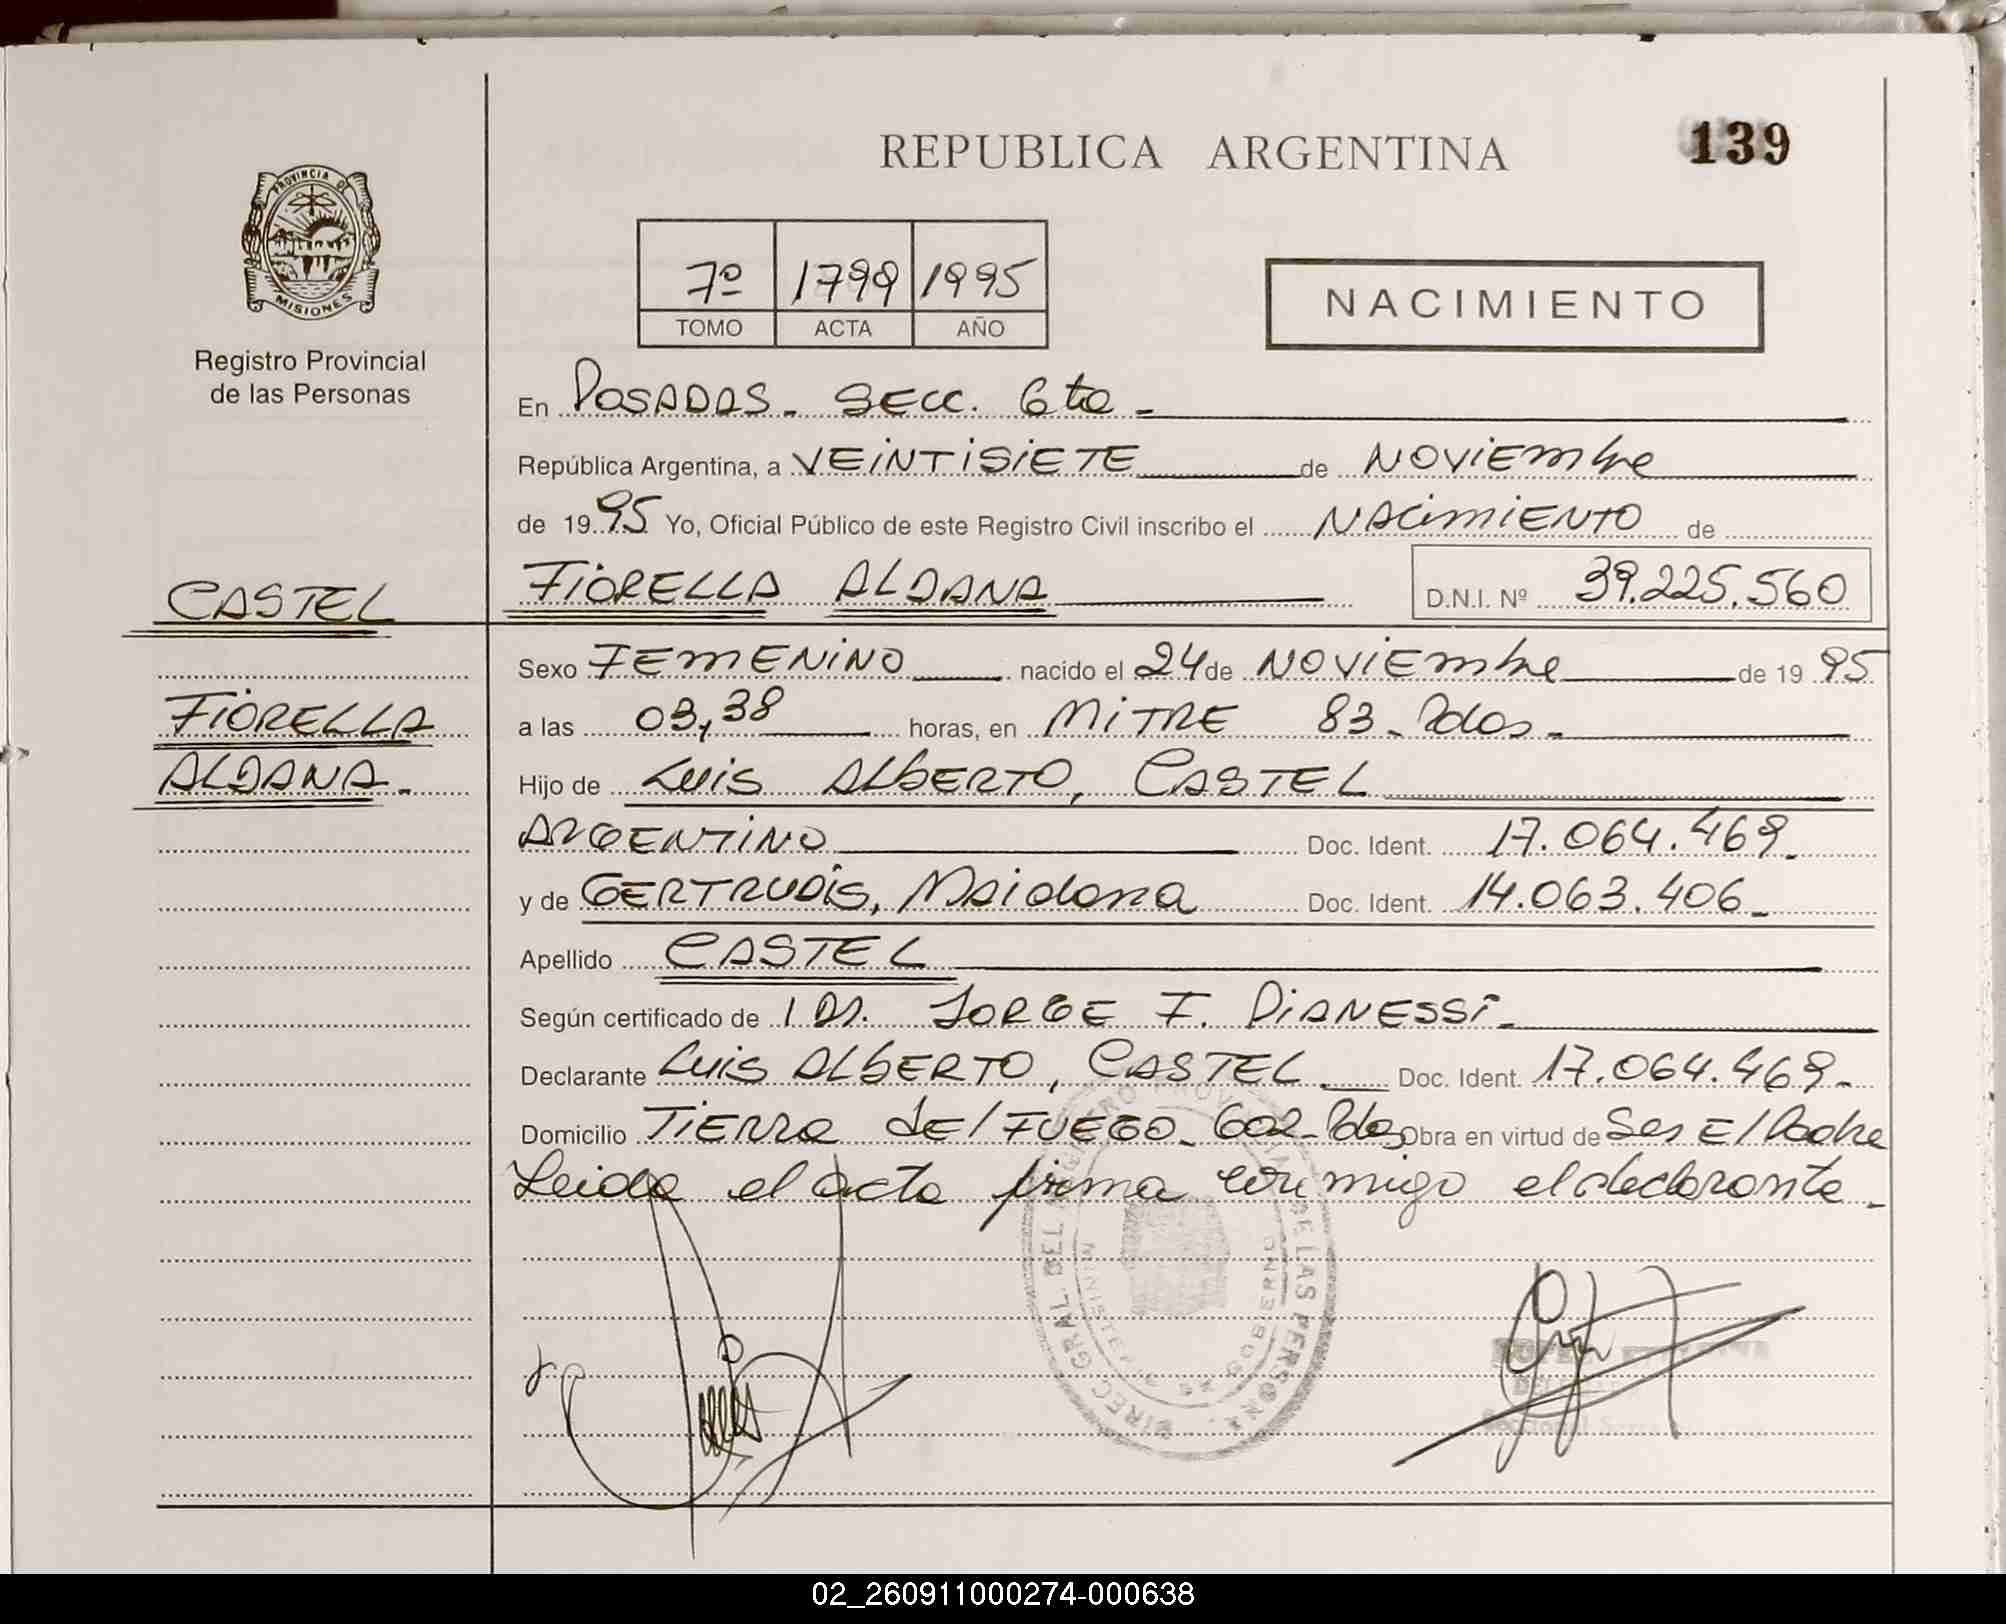 REPUBLICA ARGENTINA
139
PROVINCIA DE
MISIONES
Registro Provincial
de las Personas
7º 1799 1995
TOMO ACTA AÑO
NACIMIENTO
En POSADAS. SECC. 6ta
República Argentina, a VEINTISIETE de NOVIEMbre
de 1995 Yo, Oficial Público de este Registro Civil inscribo el NACIMIENTO de
CASTEL
FIORELLA ALDANA
D.N.I. Nº 39.225.560
Sexo FEMENINO nacido el 24 de NOVIEMbre de 1995
FIORELLA
ALDANA.
a las 03,38 horas, en MITRE 83. Pdas.
Hijo de Luis ALBERTO, CASTEL
ARGENTINO Doc. Ident. 17.064.469.
y de GERTRUDIS, Maidana Doc. Ident. 14.063.406.
Apellido CASTEL
Según certificado de 1 Dr. JORGE F. PIANESSI.
Declarante Luis ALBERTO, CASTEL Doc. Ident. 17.064.469.
Domicilio TIERRA dEl FUEGO. 602. Pdas Obra en virtud de Ser El Padre
Leida el acta firma conmigo el declarante.
DIREC. GRAL. DEL REGISTRO PROVINCIAL DE LAS PERSONAS
MINISTERIO DE GOBIERNO
Seccional
02_260911000274-000638